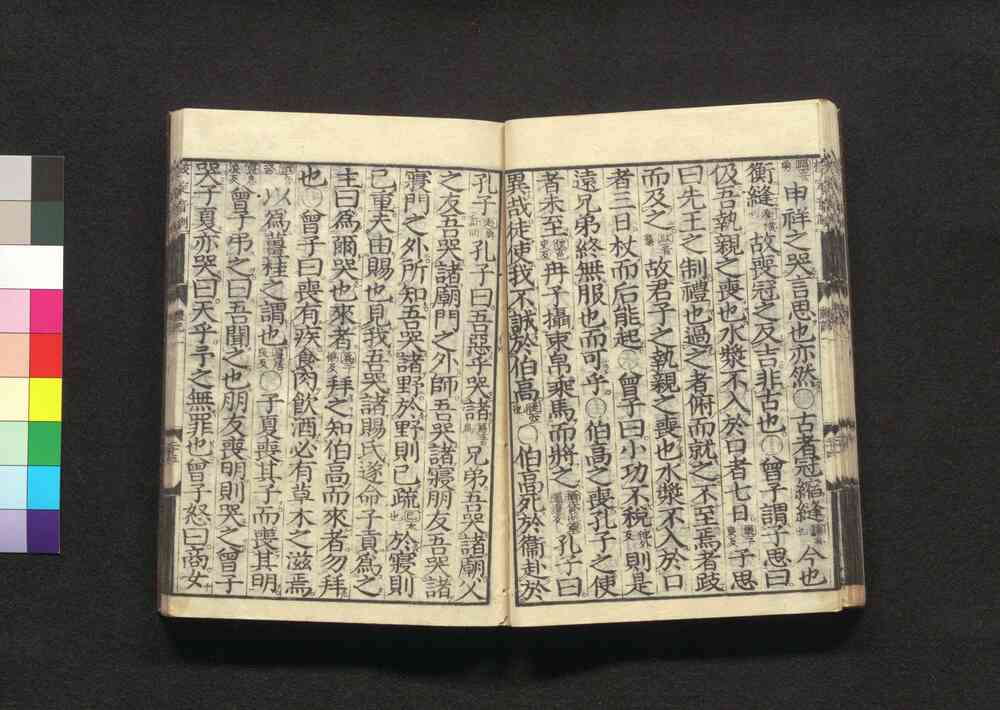 申祥之哭言思也亦然 古者冠縮縫 今也
衡縫 故喪冠之反吉非古也 曾子謂子思曰
伋吾執親之喪也水漿不入於口者七日 子思
曰先王之制禮也過之者俯而就之不至焉者跂
而及之 故君子之執親之喪也水漿不入於口
者三日杖而后能起 曾子曰小功不稅 則是
遠兄弟終無服也而可乎 伯高之喪孔子之使
者未至 冉子攝束帛乘馬而將之 孔子曰
異哉徒使我不誠於伯高 伯高死於衞赴於
孔子 孔子曰吾惡乎哭諸 兄弟吾哭諸廟父
之友吾哭諸廟門之外師吾哭諸寢朋友吾哭諸
寢門之外所知吾哭諸野於野則已疏 於寢則
已重夫由賜也見我吾哭諸賜氏遂命子貢爲之
主曰爲爾哭也來者 拜之知伯高而來者勿拜
也 曾子曰喪有疾食肉飮酒必有草木之滋焉
以爲薑桂之謂也 子夏喪其子而喪其明
曾子弔之曰吾聞之也朋友喪明則哭之曾子
哭子夏亦哭曰天乎予之無罪也曾子怒曰商女